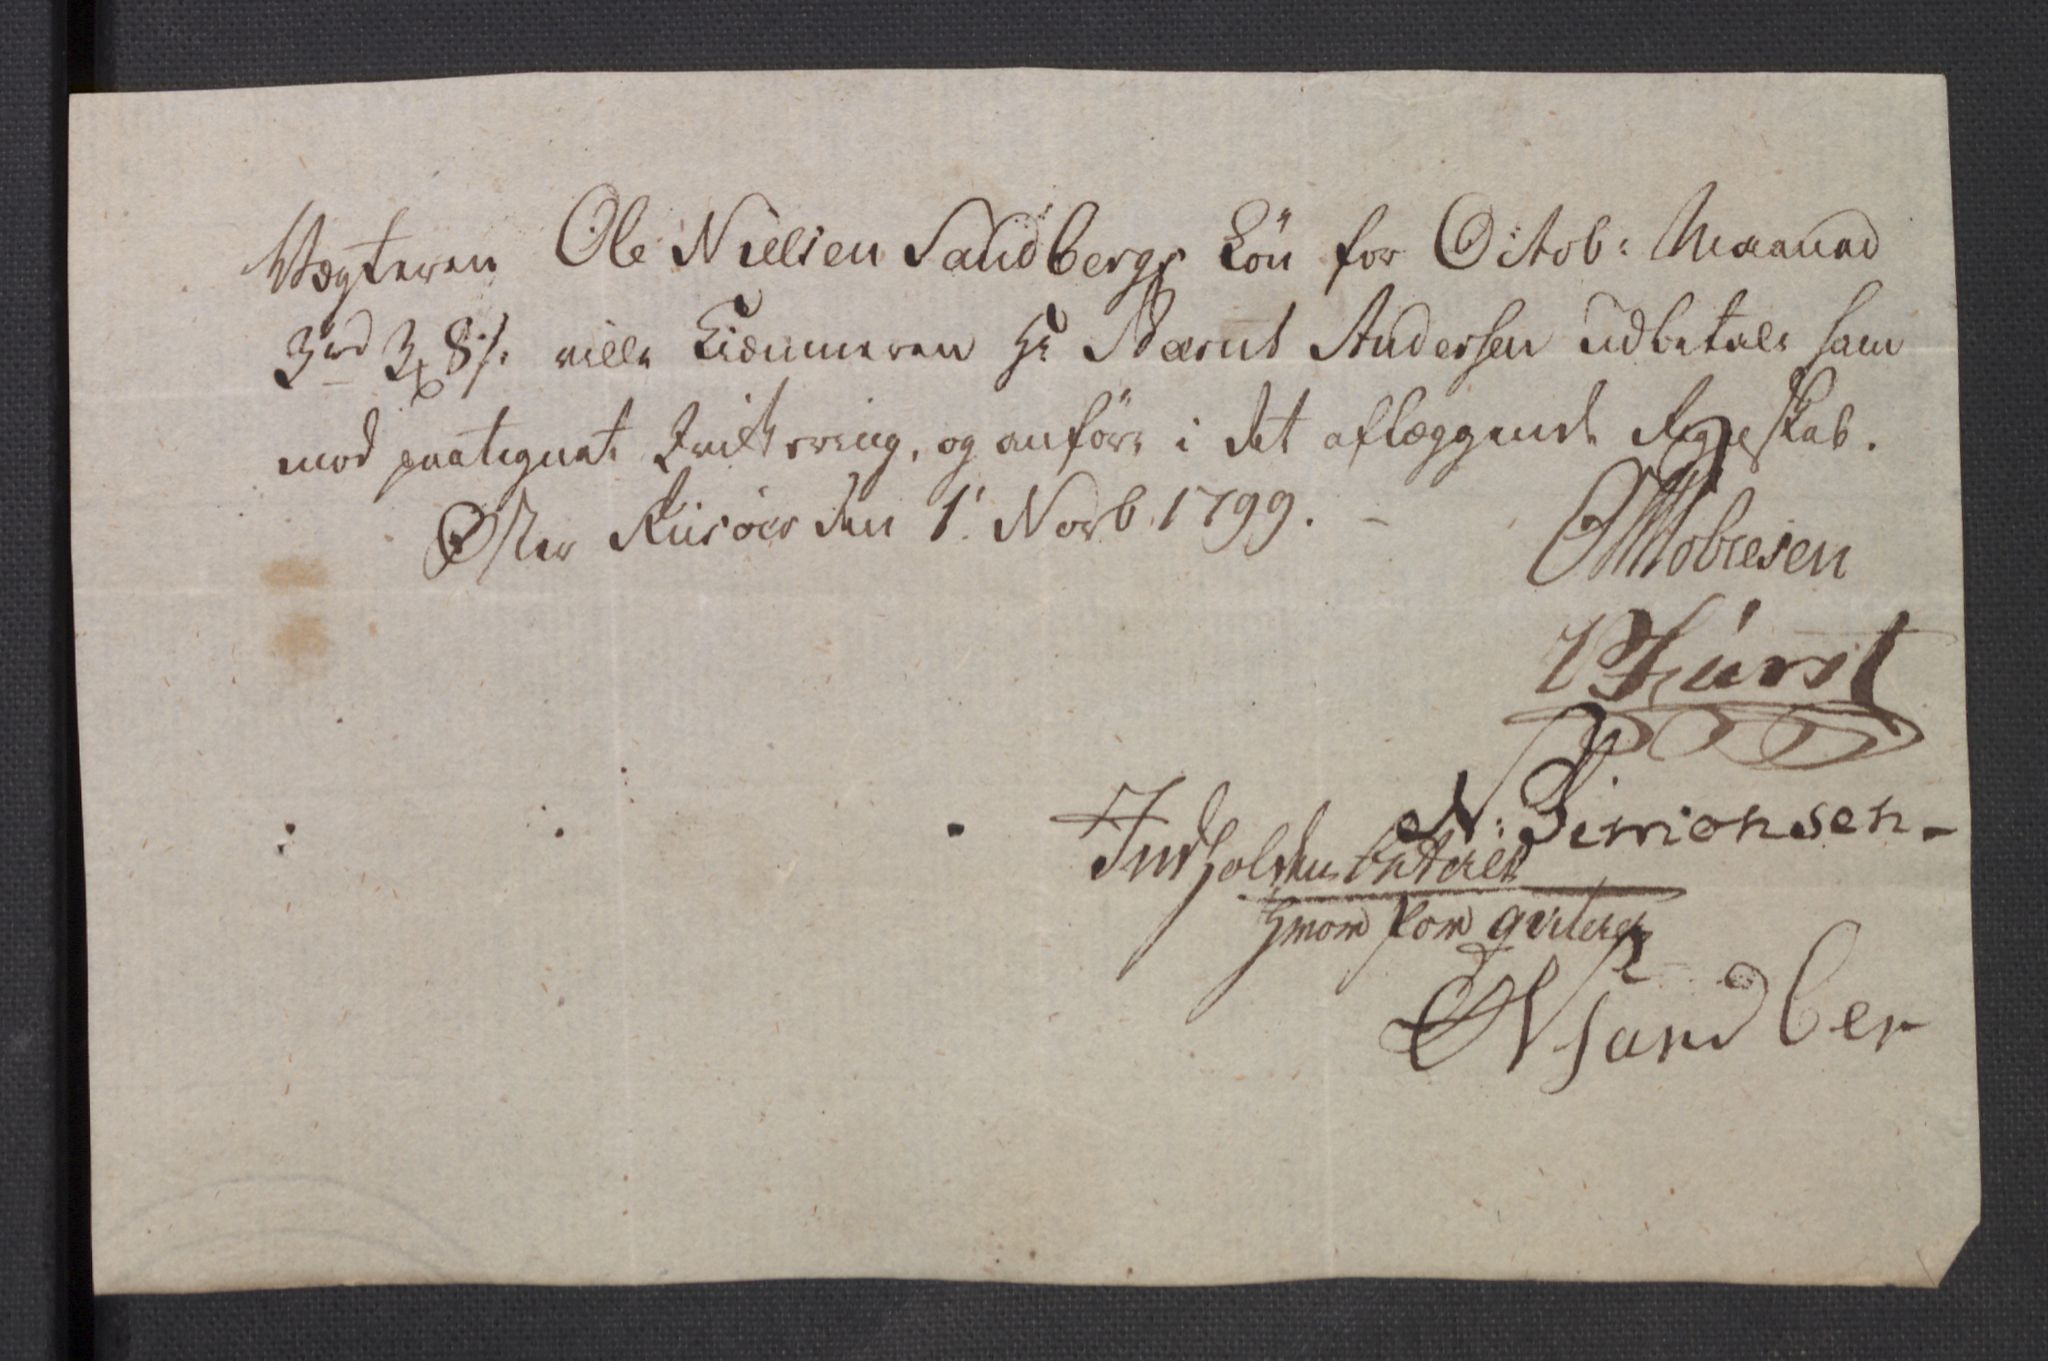 Vægteren Ole Nielsen Sandbergs Lön for Octob: Maaned
3rd 3 8 s. ville Kiæmneren Hr Barnt Andersen udbetale ham
mod paategnet Qvittering, og anföre i det aflæggende Regnskab.
Øster Riisöer den 1t Novb 1799. –
Mobiesen
Fürst
N: Simonsen –
Indholden betalt
hvorfor qviterer
ON Sandber